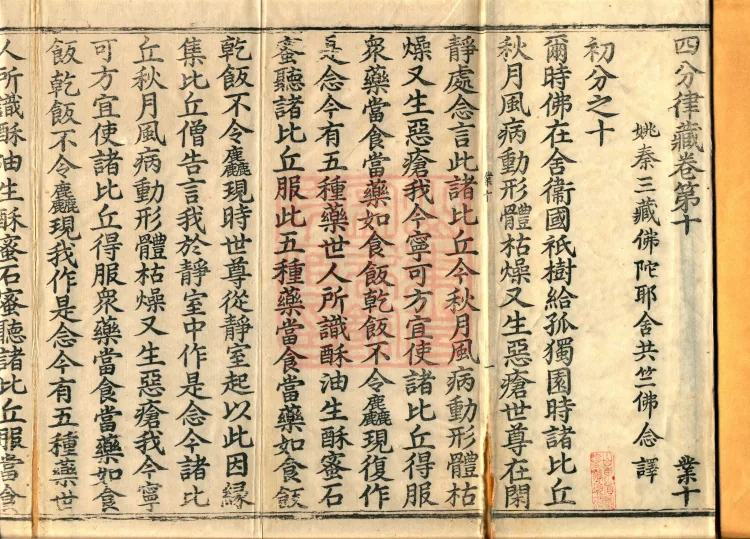 四分律藏卷第十 業十
姚秦三藏佛陀耶舍共竺佛念譯
初分之十
爾時佛在舍衞國祇樹給孤獨園時諸比丘
秋月風病動形體枯燥又生惡瘡世尊在閑
業十 一
靜處念言此諸比丘今秋月風病動形體枯
燥又生惡瘡我今寧可方宜使諸比丘得服
衆藥當食當藥如食飯乾飯不令麤現復作
是念今有五種藥世人所識酥油生酥蜜石
蜜聽諸比丘服此五種藥當食當藥如食飯
乾飯不令麤現時世尊從靜室起以此因緣
集比丘僧告言我於靜室中作是念今諸比
丘秋月風病動形體枯燥又生惡瘡我今寧
可方宜使諸比丘得服衆藥當食當藥如食
飯乾飯不令麤現我作是念今有五種藥世
人所識酥油生酥蜜石蜜聽諸比丘服當食